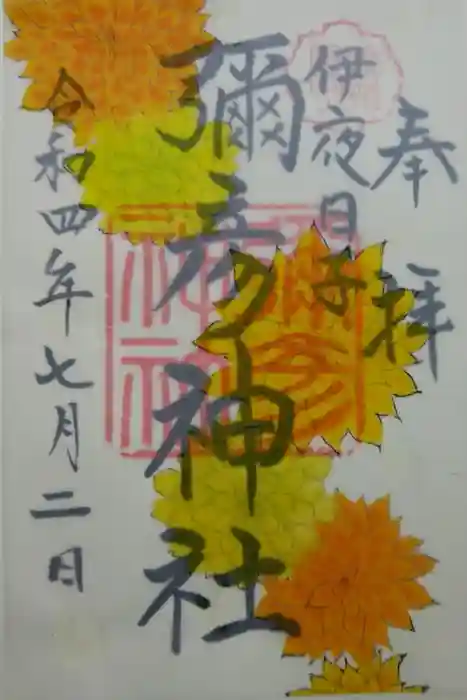 奉拝
伊夜日子
彌彦神社
令和四年七月二日